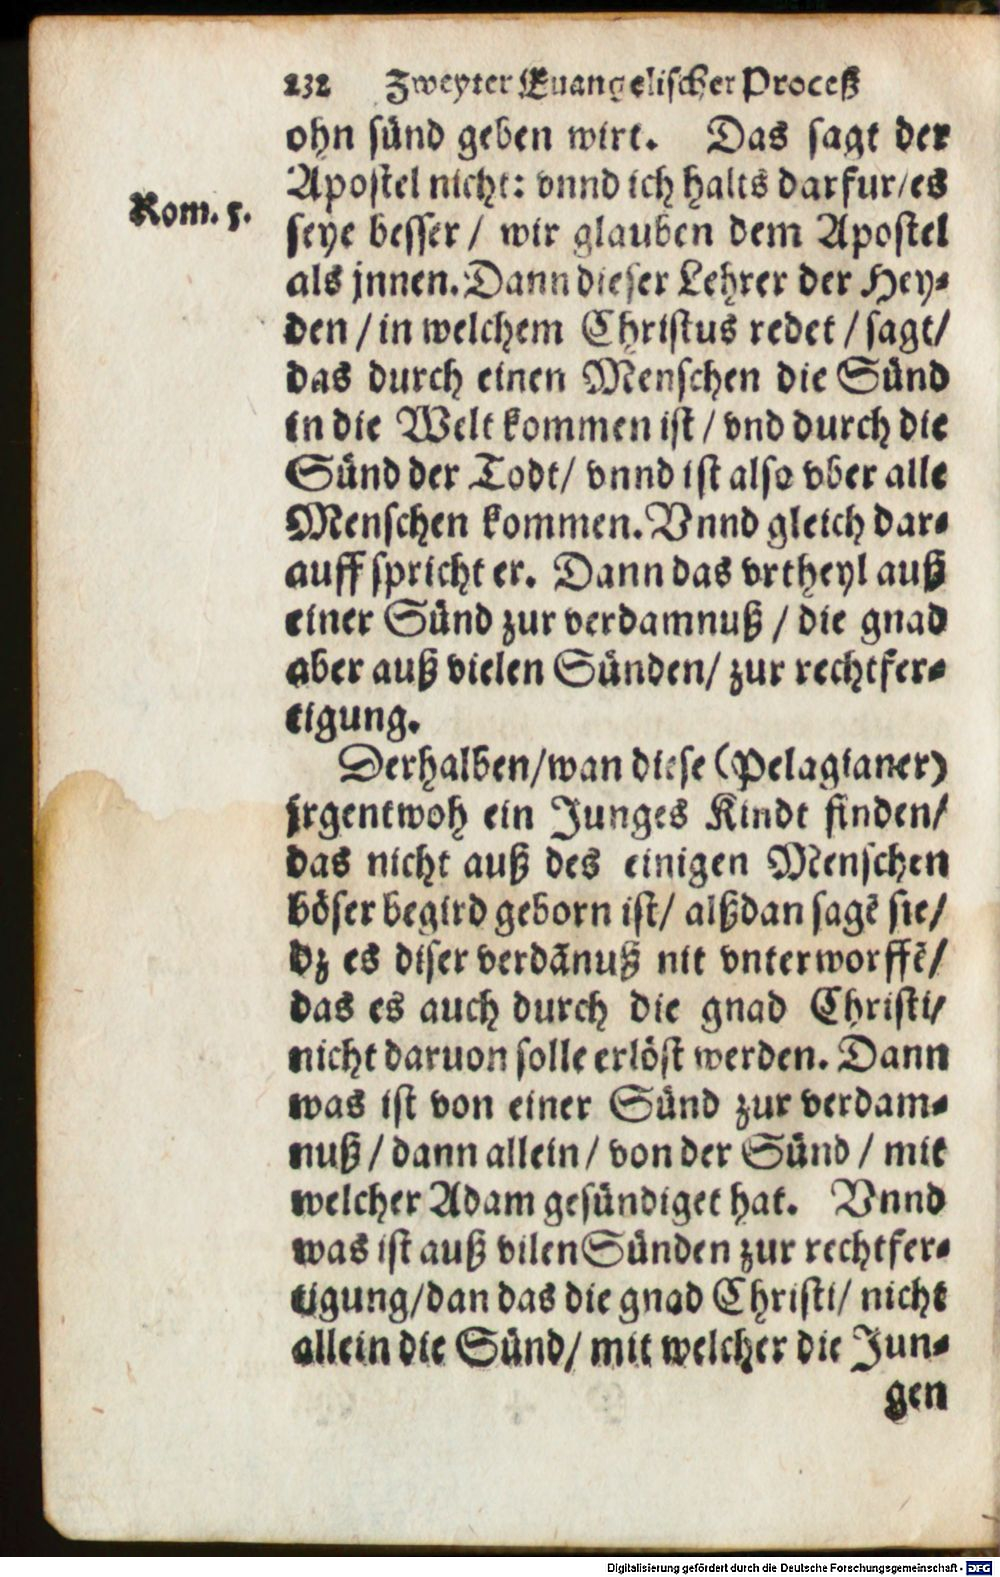 232 Zweyter Euangelischer Proceß
ohn sünd geben wirt. Das sagt der
Apostel nicht: vnnd ich halts darfur/es
Rom. 5.
seye besser / wir glauben dem Apostel
als jnnen. Dann dieser Lehrer der Hey-
den / in welchem Christus redet / sagt/
das durch einen Menschen die Sünd
in die Welt kommen ist / vnd durch die
Sünd der Todt/ vnnd ist also vber alle
Menschen kommen. Vnnd gleich dar-
auff spricht er. Dann das vrtheyl auß
einer Sünd zur verdamnuß / die gnad
aber auß vielen Sünden/ zur rechtfer-
tigung.
Derhalben/wan diese (Pelagianer)
jrgentwoh ein Junges Kindt finden/
das nicht auß des einigen Menschen
böser begird geborn ist/ alßdan sagē sie/
dz es diser verdãnuß nit vnterworffē/
das es auch durch die gnad Christi/
nicht daruon solle erlöst werden. Dann
was ist von einer Sünd zur verdam-
nuß / dann allein / von der Sünd / mit
welcher Adam gesündiget hat. Vnnd
was ist auß vilen Sünden zur rechtfer-
tigung/dan das die gnad Christi/ nicht
allein die Sünd/ mit welcher die Jun-
gen
Digitalisierung gefördert durch die Deutsche Forschungsgemeinschaft - DFG